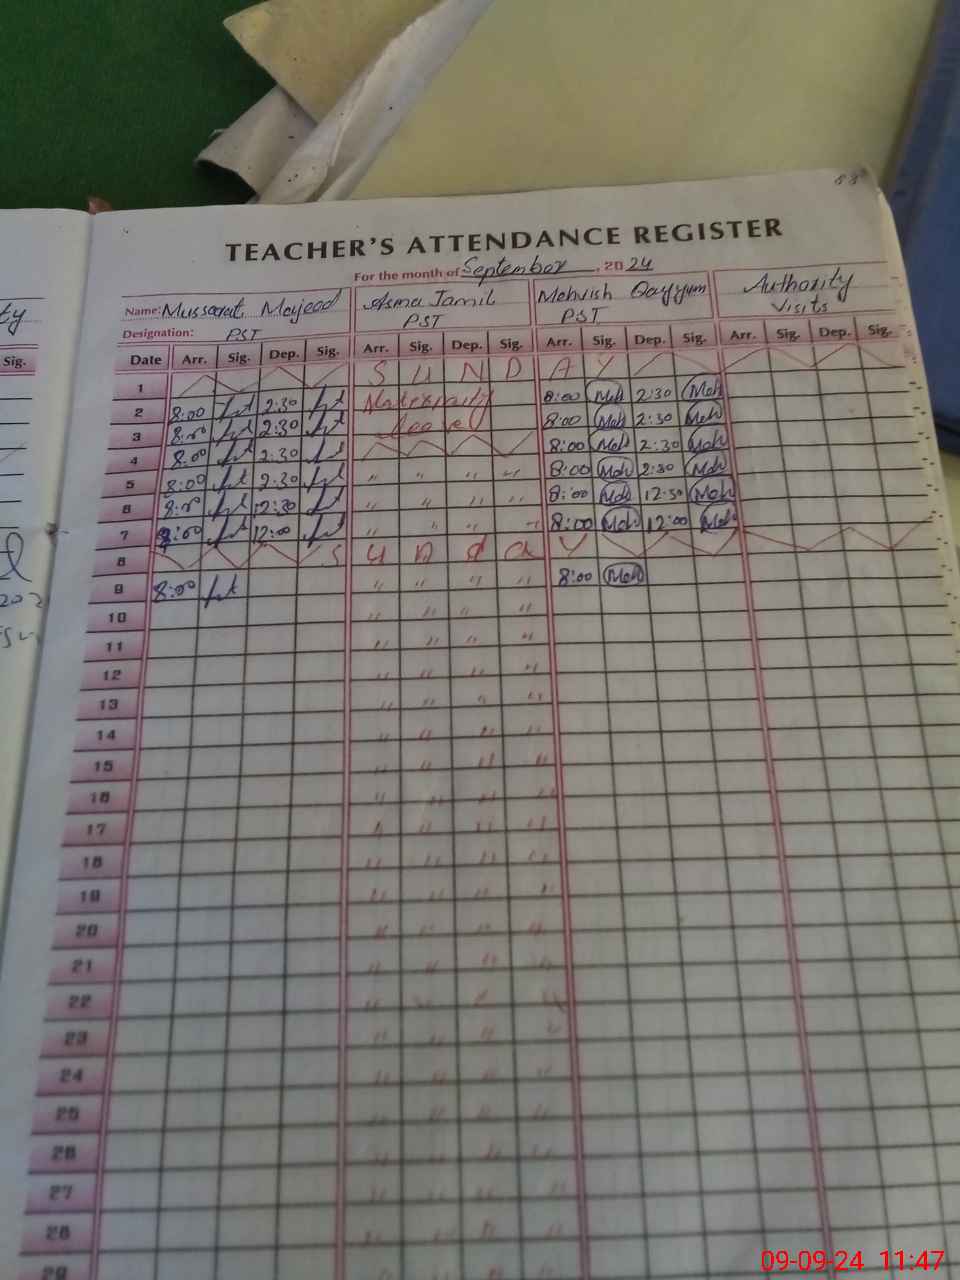 83
TEACHER'S ATTENDANCE REGISTER
For the month of September, 2024
Name: Mussarat Majeed Asma Jamil Mehvish Qayyum Authority
Designation: PST PST PST Visits
Date Arr. Sig. Dep. Sig. Arr. Sig. Dep. Sig. Arr. Sig. Dep. Sig. Arr. Sig. Dep. Sig.
1 S U N D A Y
2 8:00 2:30 Maternity 8:00 Meh 2:30 Meh
3 8:00 2:30 leave 8:00 Meh 2:30 Meh
4 8:00 2:30 8:00 Meh 2:30 Meh
5 8:00 2:30 " " " " 8:00 Meh 2:30 Meh
6 8:00 12:30 " " " " 8:00 Meh 12:30 Meh
7 8:00 12:00 " " " 8:00 Meh 12:00 Meh
8 S u n d a y
9 8:00 " " " " 8:00 Meh
10 " " " "
11 " " " "
12 " " " "
13 " " " "
14 " " " "
15 " " " "
16 " " " "
17 " " " "
18 " " " "
19 " " " "
20 " " " "
21 " " " "
22 " " " "
23 " " " "
24 " " " "
25 " " " "
26 " " " "
27 " " " "
28 " " " "
29 " " " "
ty
Sig.
202
09-09-24 11:47